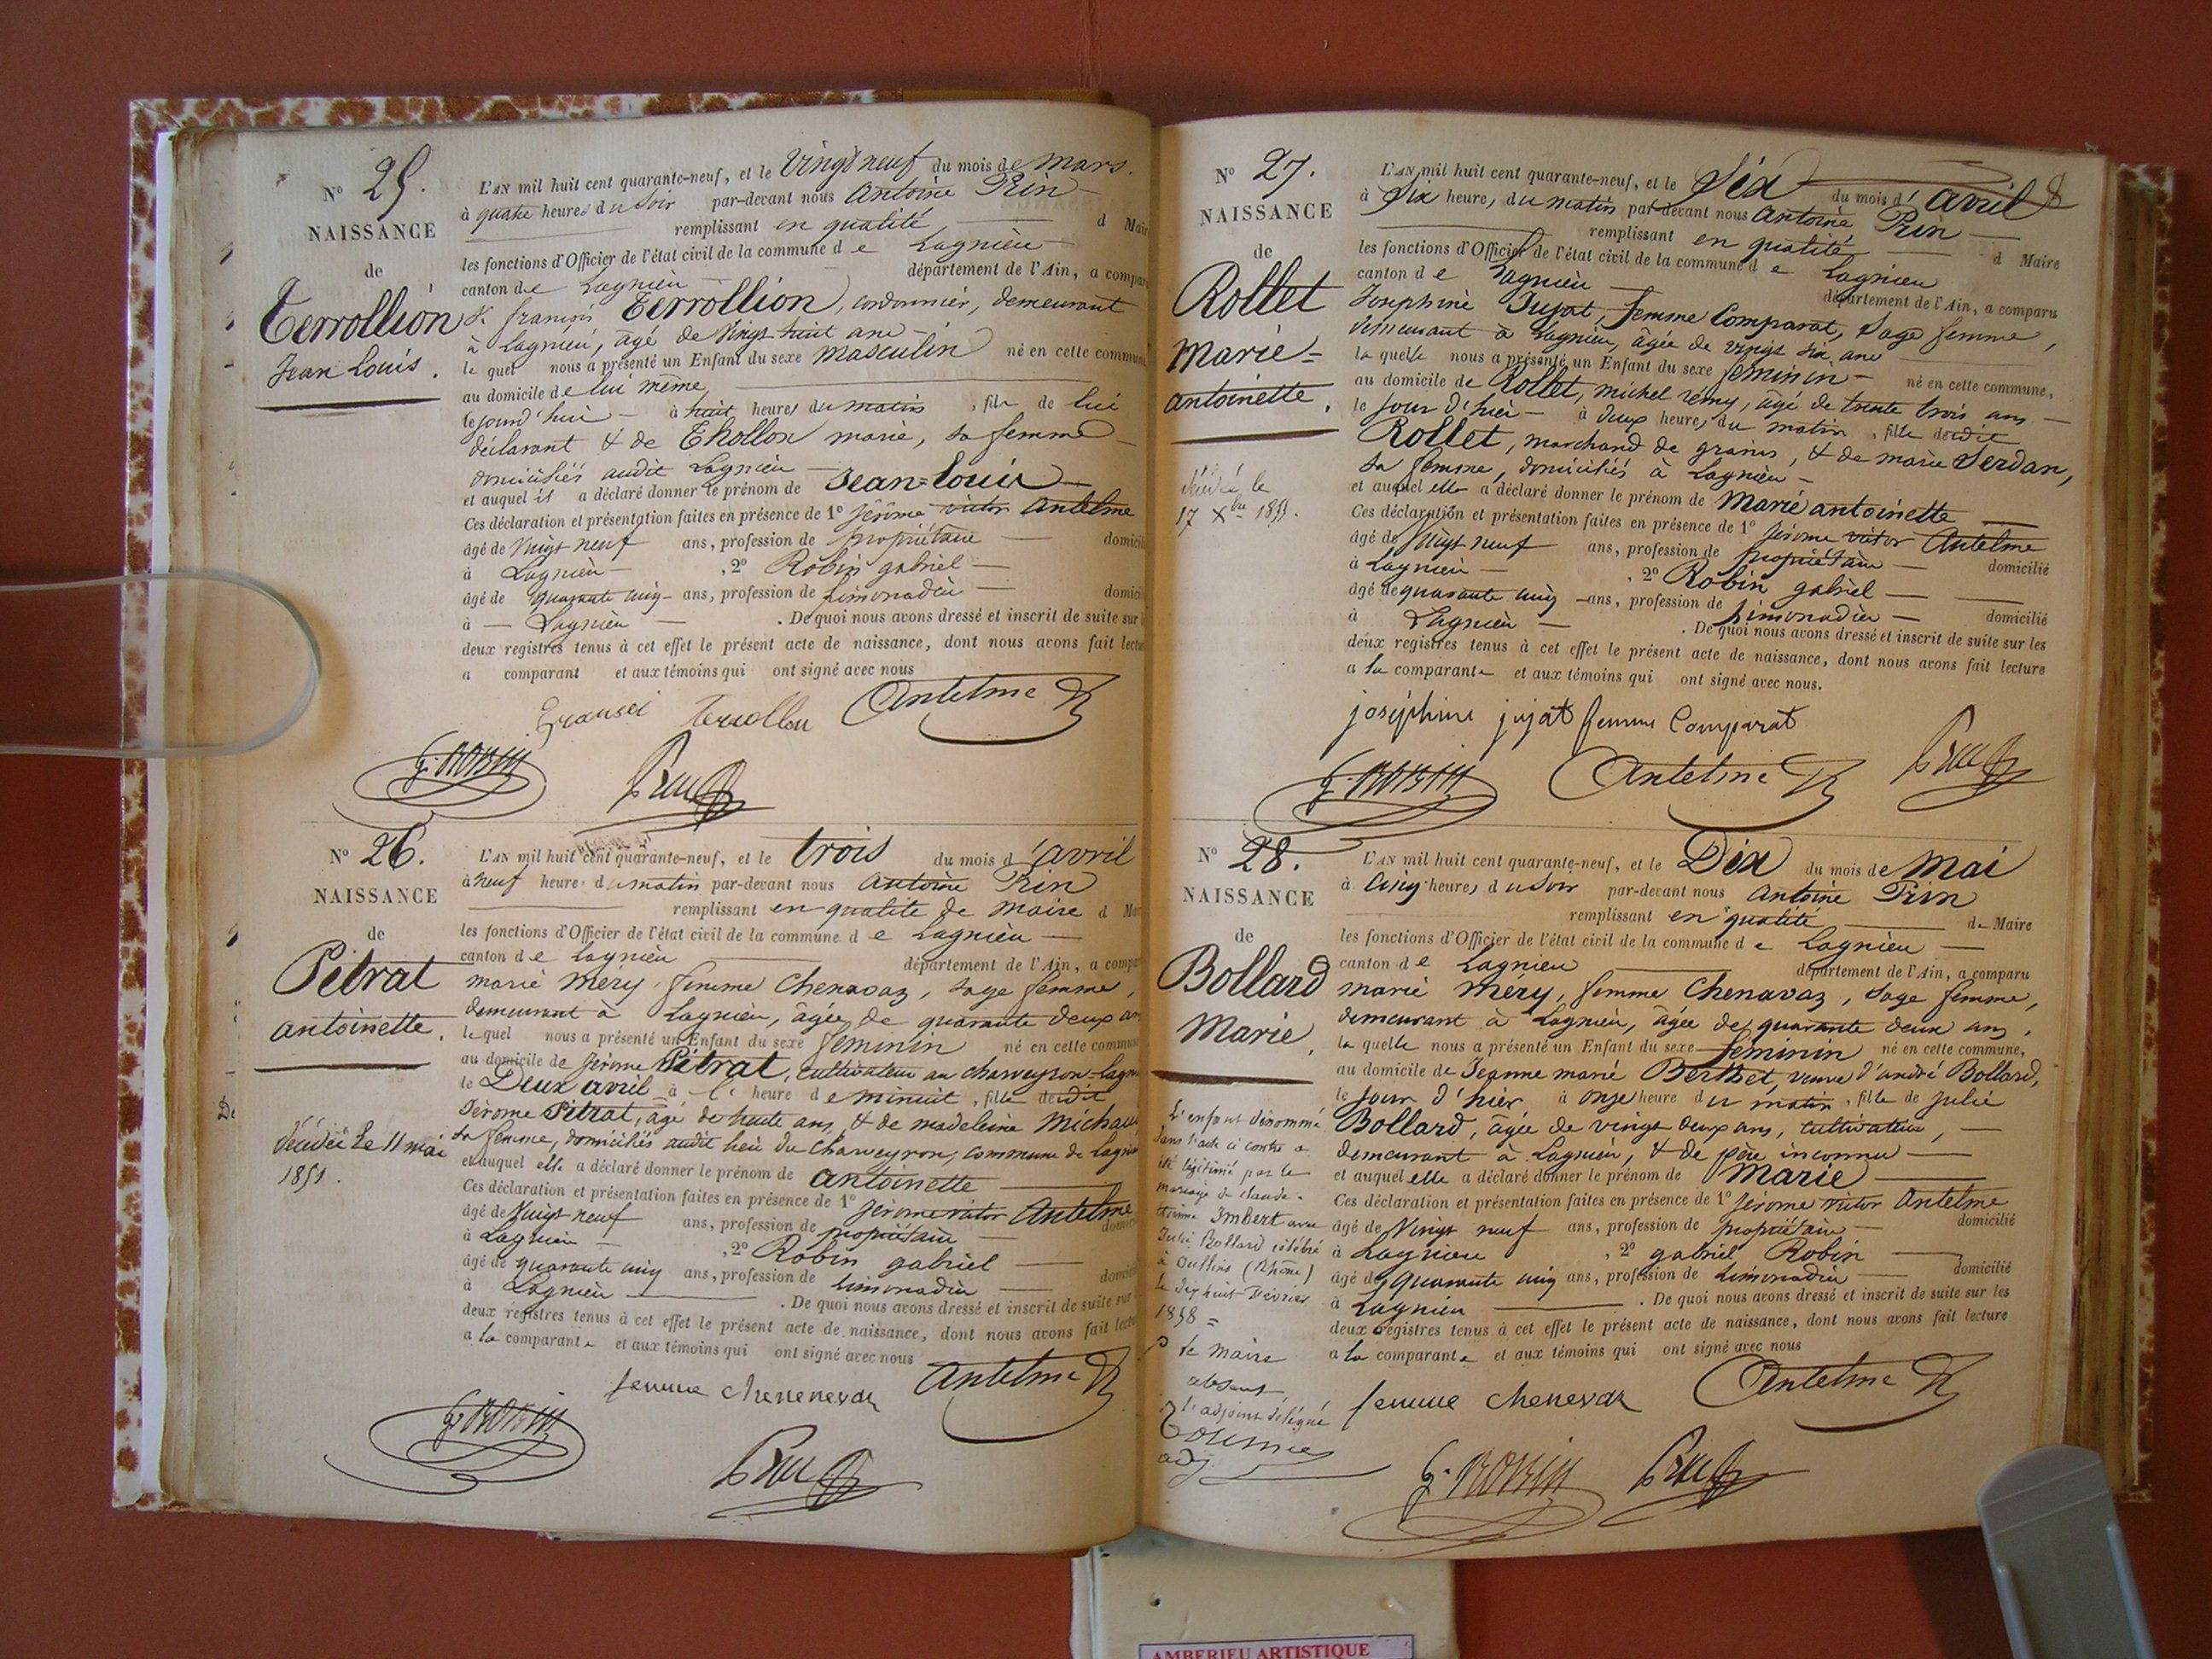 N° 25.
NAISSANCE
de
Terrollion
Jean Louis.
L'AN mil huit cent quarante-neuf, et le Vingt neuf du mois de mars.
à quatre heures du Soir par-devant nous Antoine Prin
remplissant en qualité d Maire
les fonctions d'Officier de l'état civil de la commune de Lagnieu
canton de Lagnieu département de l'Ain, a comparu
Sr françois Terrollion, cordonnier, demeurant
à Lagnieu, âgé de Vingt huit ans
le quel nous a présenté un Enfant du sexe masculin né en cette commune
au domicile de lui même,
le jourd'hui à huit heures du matin, fils de lui
déclarant & de Thollon marie, sa femme
domiciliés audit Lagnieu
et auquel il a déclaré donner le prénom de Jean=Louis
Ces déclaration et présentation faites en présence de 1° Jérôme victor Antelme
âgé de Vingt neuf ans, profession de propriétaire domicilié
à Lagnieu , 2° Robin gabriel
âgé de quarante cinq ans, profession de Limonadier domicilié
à Lagnieu . De quoi nous avons dressé et inscrit de suite sur les
deux registres tenus à cet effet le présent acte de naissance, dont nous avons fait lecture
a comparant et aux témoins qui ont signé avec nous
Terrollion Antelme
G. ROBIN Prin
N° 26.
NAISSANCE
de
Pétrat
antoinette.
décédée Le 11 mai
1851.
L'AN mil huit cent quarante-neuf, et le trois du mois d'avril
à neuf heures du matin par-devant nous Antoine Prin
remplissant en qualité de maire d Maire
les fonctions d'Officier de l'état civil de la commune de Lagnieu
canton de Lagnieu département de l'Ain, a comparu
marie méry femme Chenavaz, sage femme,
demeurant à Lagnieu, âgée de quarante deux ans
le quel nous a présenté un Enfant du sexe féminin né en cette commune
au domicile de Jérôme Pétrat, cultivateur au charveyron-Lagnieu
le Deux avril à l' heure de minuit, fille dudit
Jérome Pétrat, âgé de trente ans, & de madeleine Michaud
sa femme, domiciliés audit lieu du Charveyron, commune de Lagnieu
et auquel elle a déclaré donner le prénom de antoinette
Ces déclaration et présentation faites en présence de 1° Jérome victor Antelme
âgé de Vingt neuf ans, profession de propriétaire domicilié
à Lagnieu , 2° Robin gabriel
âgé de quarante cinq ans, profession de limonadier domicilié
à Lagnieu . De quoi nous avons dressé et inscrit de suite sur
deux registres tenus à cet effet le présent acte de naissance, dont nous avons fait lecture
a la comparante et aux témoins qui ont signé avec nous
femme Antelme
G. ROBIN Prin
N° 27.
NAISSANCE
de
Rollet
Marie=
antoinette.
décédée le
17 Xbre 1855.
L'AN mil huit cent quarante-neuf, et le Six du mois d'avril
à Six heures du matin par-devant nous Antoine Prin
remplissant en qualité d Maire
les fonctions d'Officier de l'état civil de la commune de Lagnieu
canton de Lagnieu département de l'Ain, a comparu
Joséphine Jujat, femme Comparat, Sage femme,
demeurant à Lagnieu, âgée de vingt six ans
la quelle nous a présenté un Enfant du sexe féminin né en cette commune,
au domicile de Rollet, michel rémy, âgé de trente trois ans
le jour d'hier à deux heures du matin, fille dudit
Rollet, marchand de grains, & de marie Serdan,
sa femme, domiciliés à Lagnieu
et auquel elle a déclaré donner le prénom de Marie antoinette
Ces déclaration et présentation faites en présence de 1° Jérome victor Antelme
âgé de Vingt neuf ans, profession de propriétaire domicilié
à Lagnieu , 2° Robin gabriel
âgé de quarante cinq ans, profession de limonadier domicilié
à Lagnieu . De quoi nous avons dressé et inscrit de suite sur les
deux registres tenus à cet effet le présent acte de naissance, dont nous avons fait lecture
a la comparante et aux témoins qui ont signé avec nous.
joséphine jujat femme Comparat
G. ROBIN Antelme Prin
N° 28.
NAISSANCE
de
Bollard
Marie,
L'enfant dénommé
dans l'acte ci contre a
été légitimé par le
mariage de claude
Imbert avec
Julie Bollard célébré
à Oullins (Rhône)
le dix huit Février
1858 =
Le maire
absent,
l'adjoint délégué
adj
L'AN mil huit cent quarante-neuf, et le Dix du mois de Mai
à Cinq heures du Soir par-devant nous Antoine Prin
remplissant en qualité de Maire
les fonctions d'Officier de l'état civil de la commune de Lagnieu
canton de Lagnieu département de l'Ain, a comparu
marie Mery, femme Chenavaz, Sage femme,
demeurant à Lagnieu, âgée de quarante deux ans.
la quelle nous a présenté un Enfant du sexe féminin né en cette commune,
au domicile de Jeanne marie Berthet, veuve d'andré Bollard,
le jour d'hier à onze heure du matin, fille de julie
Bollard, âgée de vingt deux ans, cultivateur,
demeurant à Lagnieu, & de père inconnu
et auquel elle a déclaré donner le prénom de Marie
Ces déclaration et présentation faites en présence de 1° Jérome victor Antelme
âgé de Vingt neuf ans, profession de propriétaire domicilié
à Lagnieu , 2° gabriel Robin
âgé de quarante cinq ans, profession de Limonadier domicilié
à Lagnieu . De quoi nous avons dressé et inscrit de suite sur les
deux registres tenus à cet effet le présent acte de naissance, dont nous avons fait lecture
a la comparante et aux témoins qui ont signé avec nous
femme Antelme
G. ROBIN Prin
AMBERIEU ARTISTIQUE